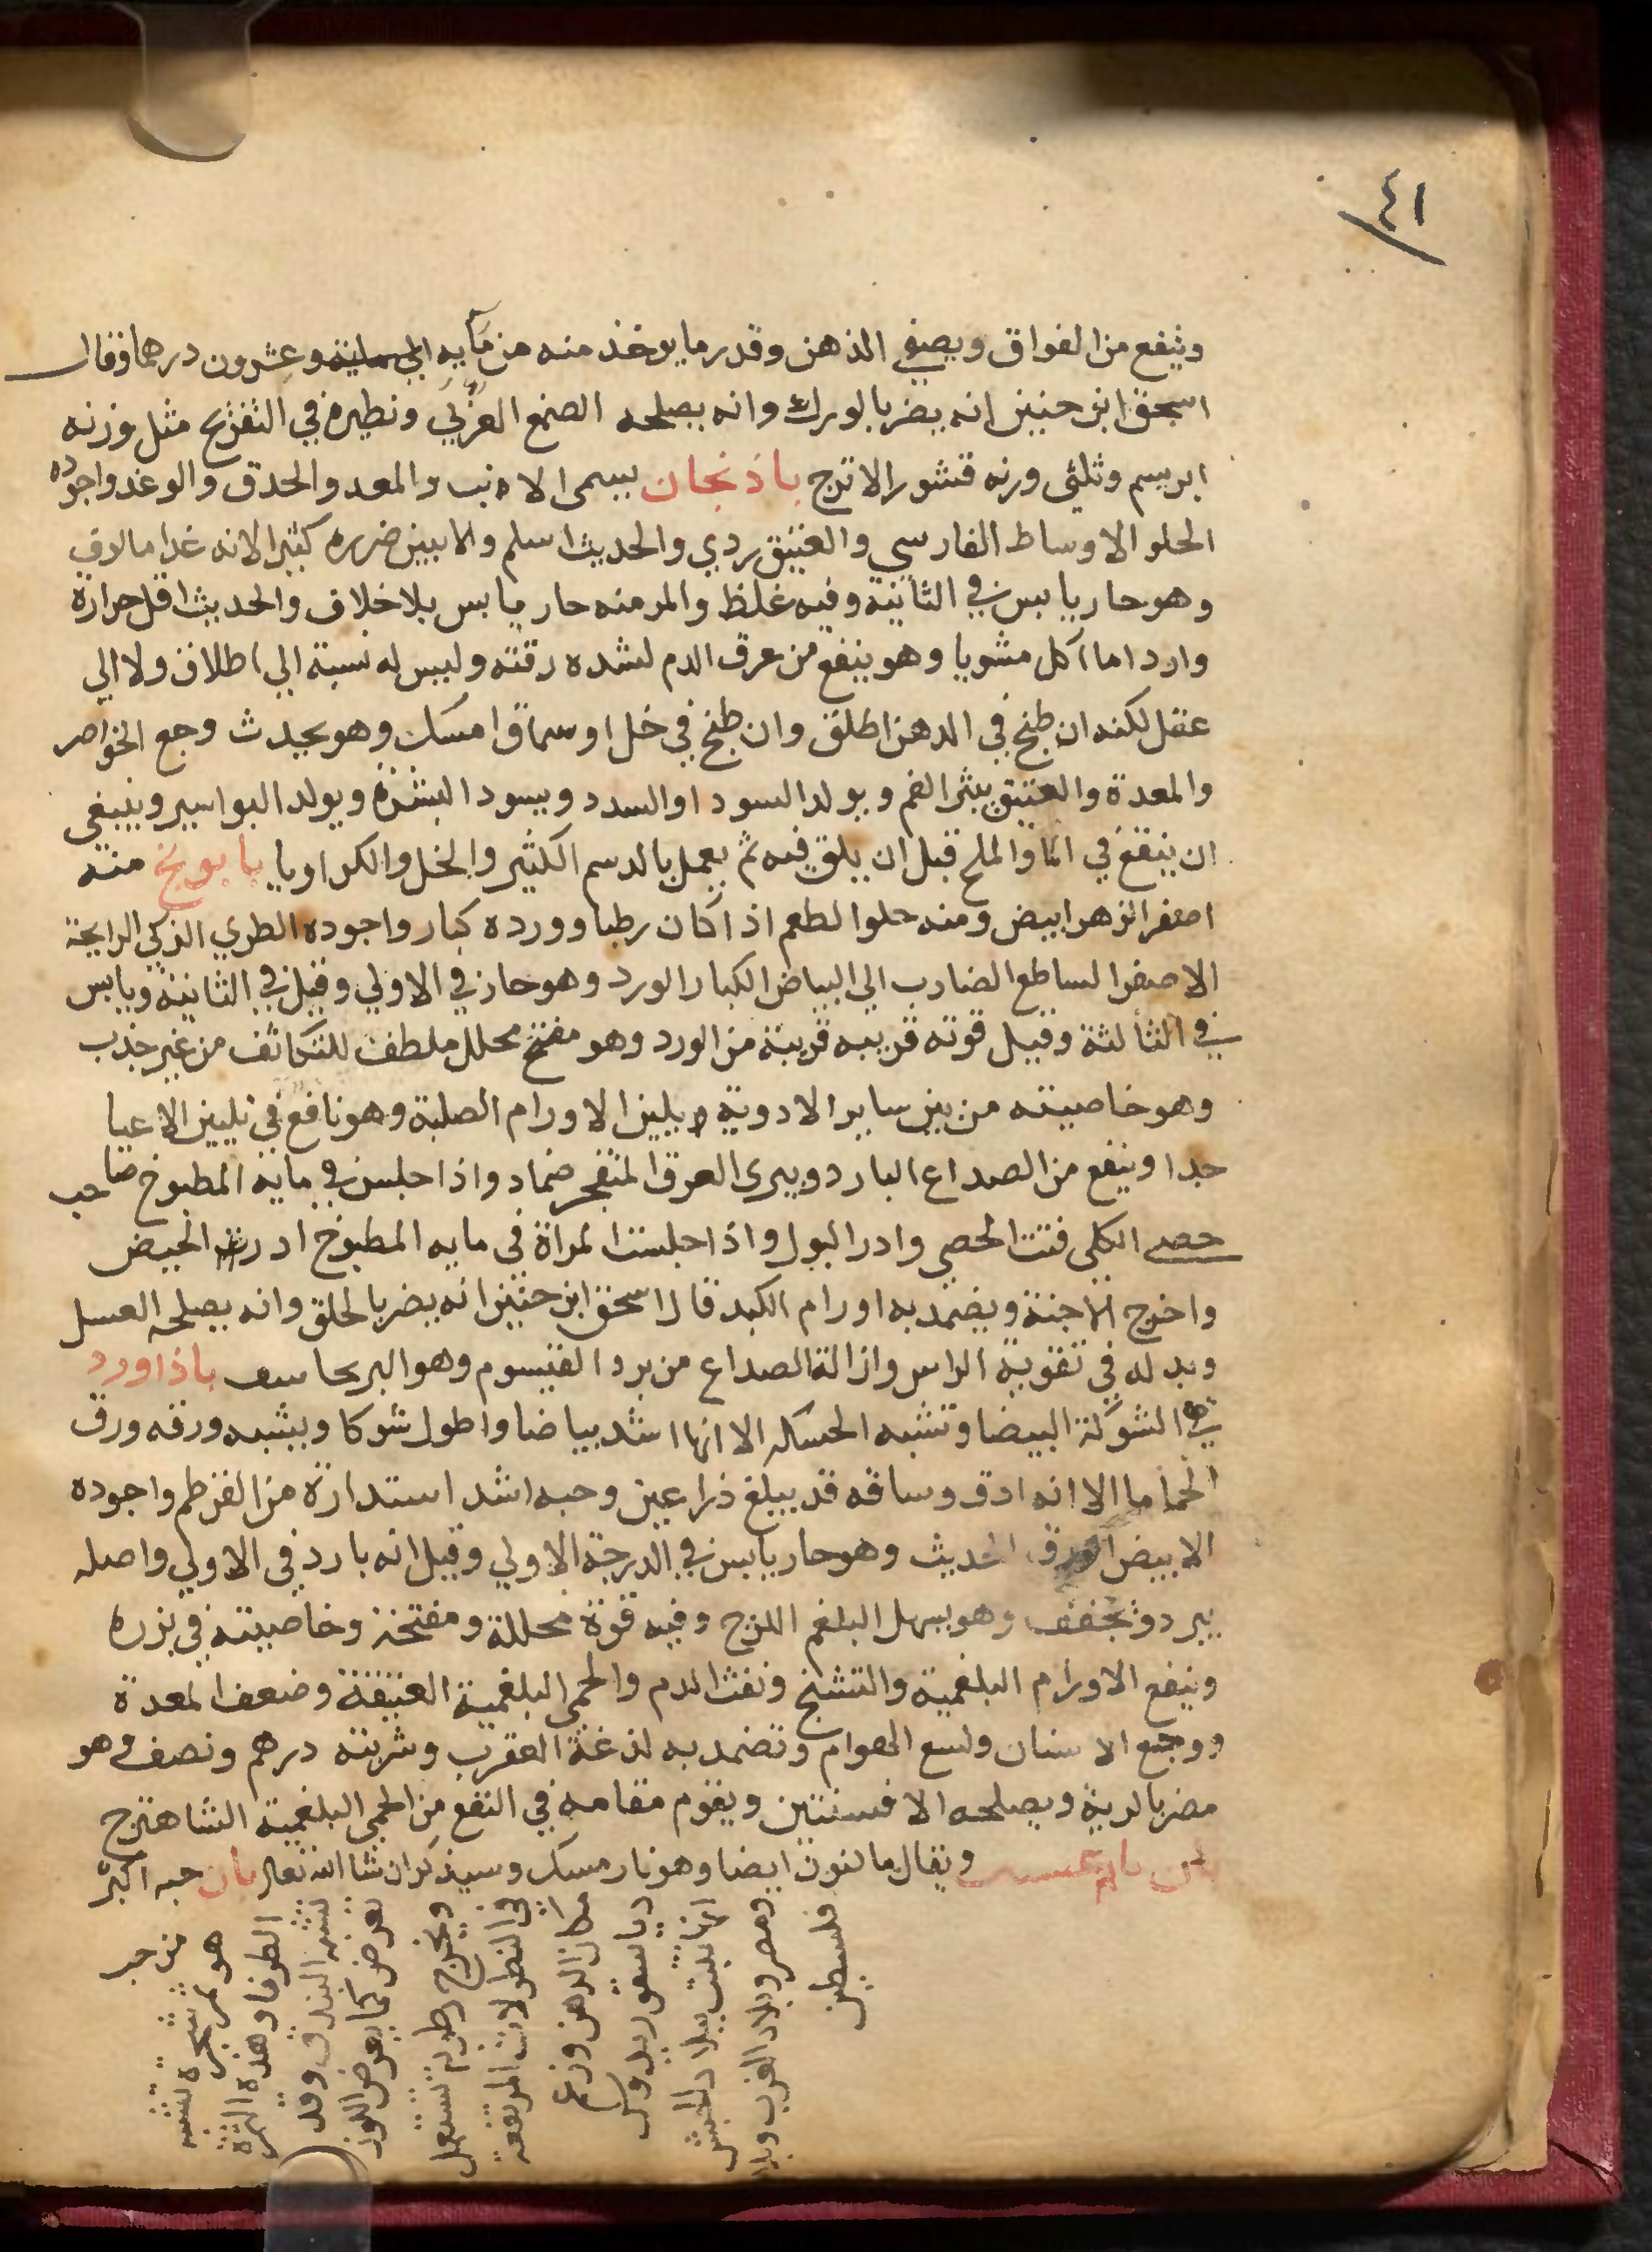 ٤١
وينفع من الفواق ويصفي الذهن وقدر ما يوخذ منه من مايه الي وعشرون درهما وقال
اسحق ابن حنين انه يضر بالورك وانه يصلحه الصمغ العربي ونظيره في التفريح مثل وزنه
ابريسم وثلثي وزنه قشور الاترج باذنجان يسمي الانب والمعد والحدق والوغد واجوده
الحلو الاوساط الفارسي والعتيق ردي والحديث اسلم والا يبين ضرره كثيرا لانه غدا مالوف
وهو حار يابس في الثانية وفيه غلظ والمر منه حار يابس بلا خلاف والحديث اقل حرارة
وارد اما اكل مشويا وهو ينفع من عرق الدم لشده رقته وليس له نسبة الي اطلاق ولا الي
عقل لكنه ان طبخ في الدهن اطلق وان طبخ في خل او سماق امسك وهو يحدث وجع الخواصر
والمعدة والعتيق يبثر الفم ويولد السودا والسدد ويسود البشرة ويولد البواسير وينبغي
ان ينقع في الما والملح قبل ان يلق فيه ثم يعمل بالدسم الكثير والخل والكراويا بابونج منه
اصفر الزهر ابيض ومنه حلو الطعم اذا كان رطبا وورده كبار واجوده الطري الذكي الرايحة
الاصفر الساطع الضارب الي البياض الكبار الورد وهو حار في الاولي وقيل في الثانية ويابس
في الثالثة وقيل قوته قريبه قريبة من الورد وهو مفتح محلل ملطف للتكاثف من غير جذب
وهو خاصيته من بين ساير الادوية ويلين الاورام الصلبة وهو نافع في تليين الاعيا
جدا وينفع من الصداع البارد ويبري العرق المتفجر ضماد واذا جلس في مايه المطبوخ صاحب
حصي الكلي فتت الحصي وادر البول واذا جلست المراة في مايه المطبوخ ادرت الحيض
واخرج الاجنة ويضمد به اورام الكبد قال اسحق ابن حنين انه يضر بالحلق وانه يصلحه العسل
وبدله في تقوية الراس وازالة الصداع من برد القيسوم وهو البرنجاسف باذاورد
هي الشوكة البيضا وتشبه الحسكه الا انها اشد بياضا واطول شوكا ويشبه ورقه ورق
الحماما الا انه ادق وساقه قد يبلغ ذراعين وحبه اشد استدارة من القرطم واجوده
الابيض الحديث وهو حار يابس في الدرجة الاولي وقيل انه بارد في الاولي واصله
يبرد وتجفف وهو يسهل البلغم اللزج وفيه قوة محللة ومفتحة وخاصيته في بزره
وينفع الاورام البلغمية والتشنج ونفث الدم والحمي البلغمية العتيقة وضعف المعدة
ووجع الاسنان ولسع الهوام وتضمد به لدغة العقرب وشربته درهم ونصف وهو
مضر بالرية ويصلحه الافسنتين ويقوم مقامه في النفع من الحمي البلغمية الشاهترج
ويقال ما لنون ايضا وهو نارمسك وسيذكر ان شا الله تعالى بان حبه اكبر
من حب
هو ثمر شجرة تشبه
الطرفا وهذه الثمرة
تشبه البندق وقد
تعرض كما يعرض اللوز
ويخرج رطوبة تستعمل
في النطولات المرتفعه
مكان الدهن وزعم
دياسقوريدوس
انها تنبت ببلاد الحبش
ومصر وبلاد العرب وبلا
فلسطين